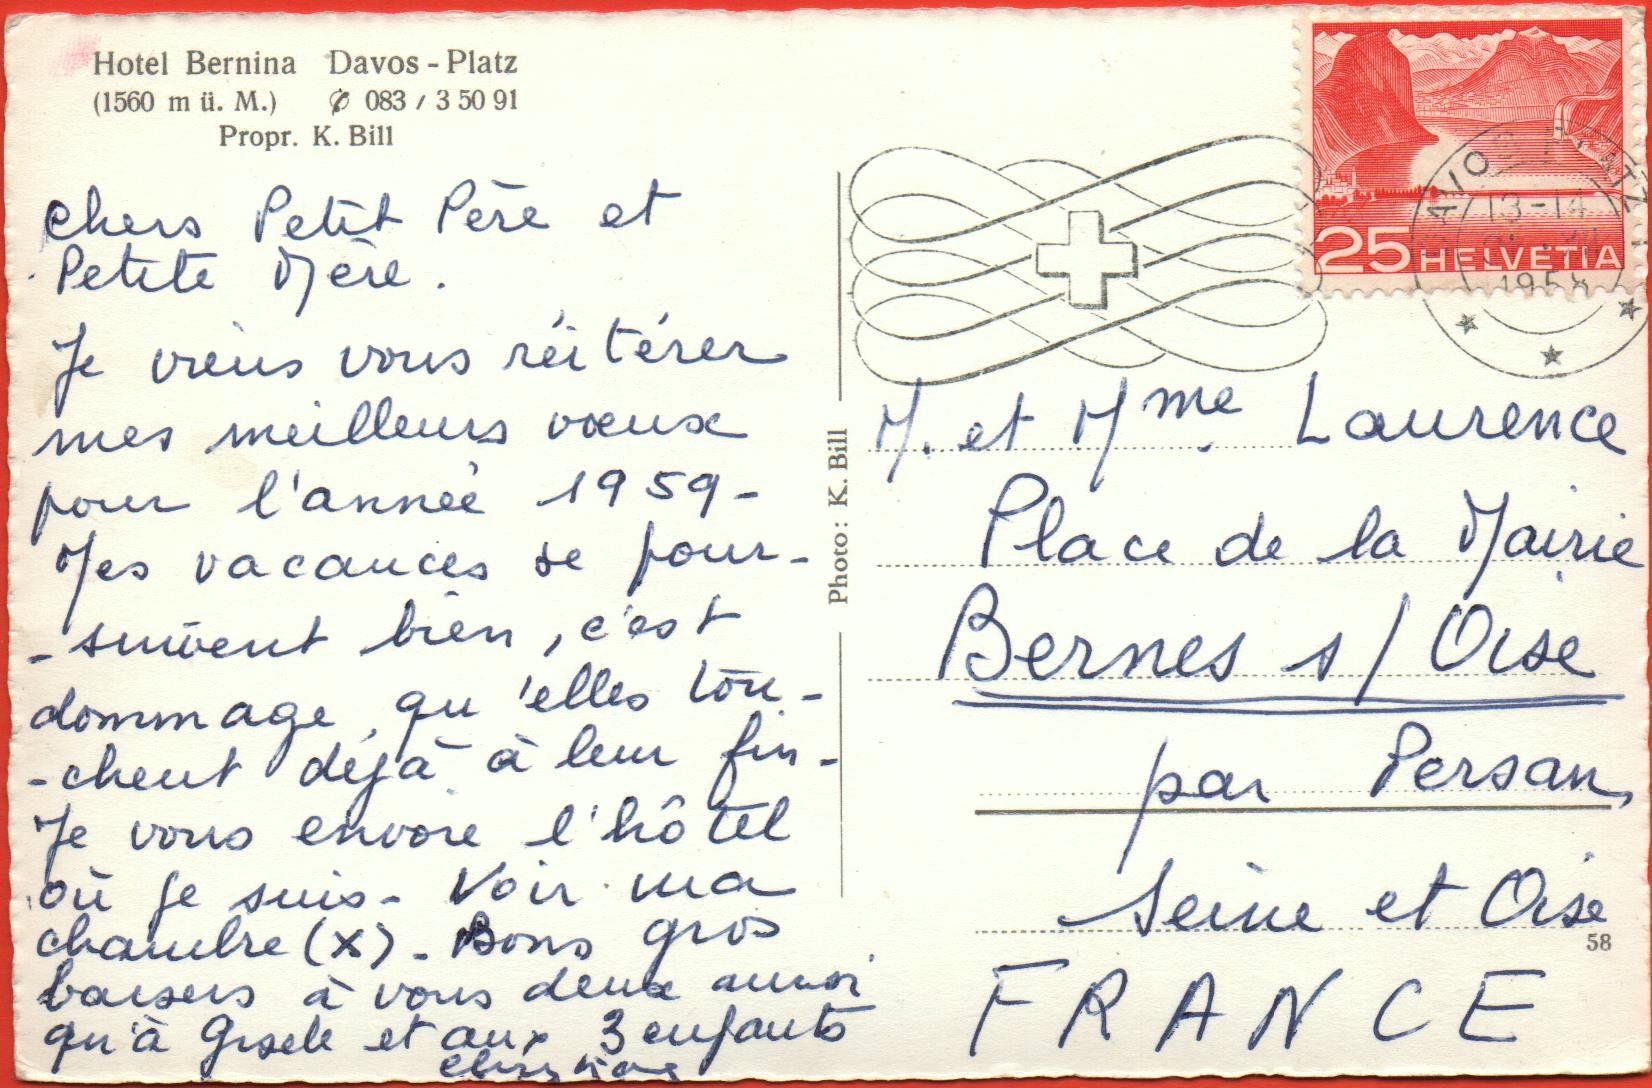 Hotel Bernina Davos-Platz
(1560 m ü. M.) ✆ 083 / 3 50 91
Propr. K. Bill
chers Petit Père et
Petite Mère.
Je viens vous réitérer
mes meilleurs vœux
pour l'année 1959-
Mes vacances se pour-
-suivent bien, c'est
dommage, qu'elles tou-
-chent déjà à leur fin-
Je vous envoie l'hôtel
où je suis- Voir ma
chambre (x)- Bons gros
baisers à vous deux aussi
qu'à Gisèle et aux 3 enfants
Photo: K. Bill
25 HELVETIA
13-14
M. et Mme Laurence
Place de la Mairie
Bernes s/ Oise
par Persan,
Seine et Oise
58
FRANCE